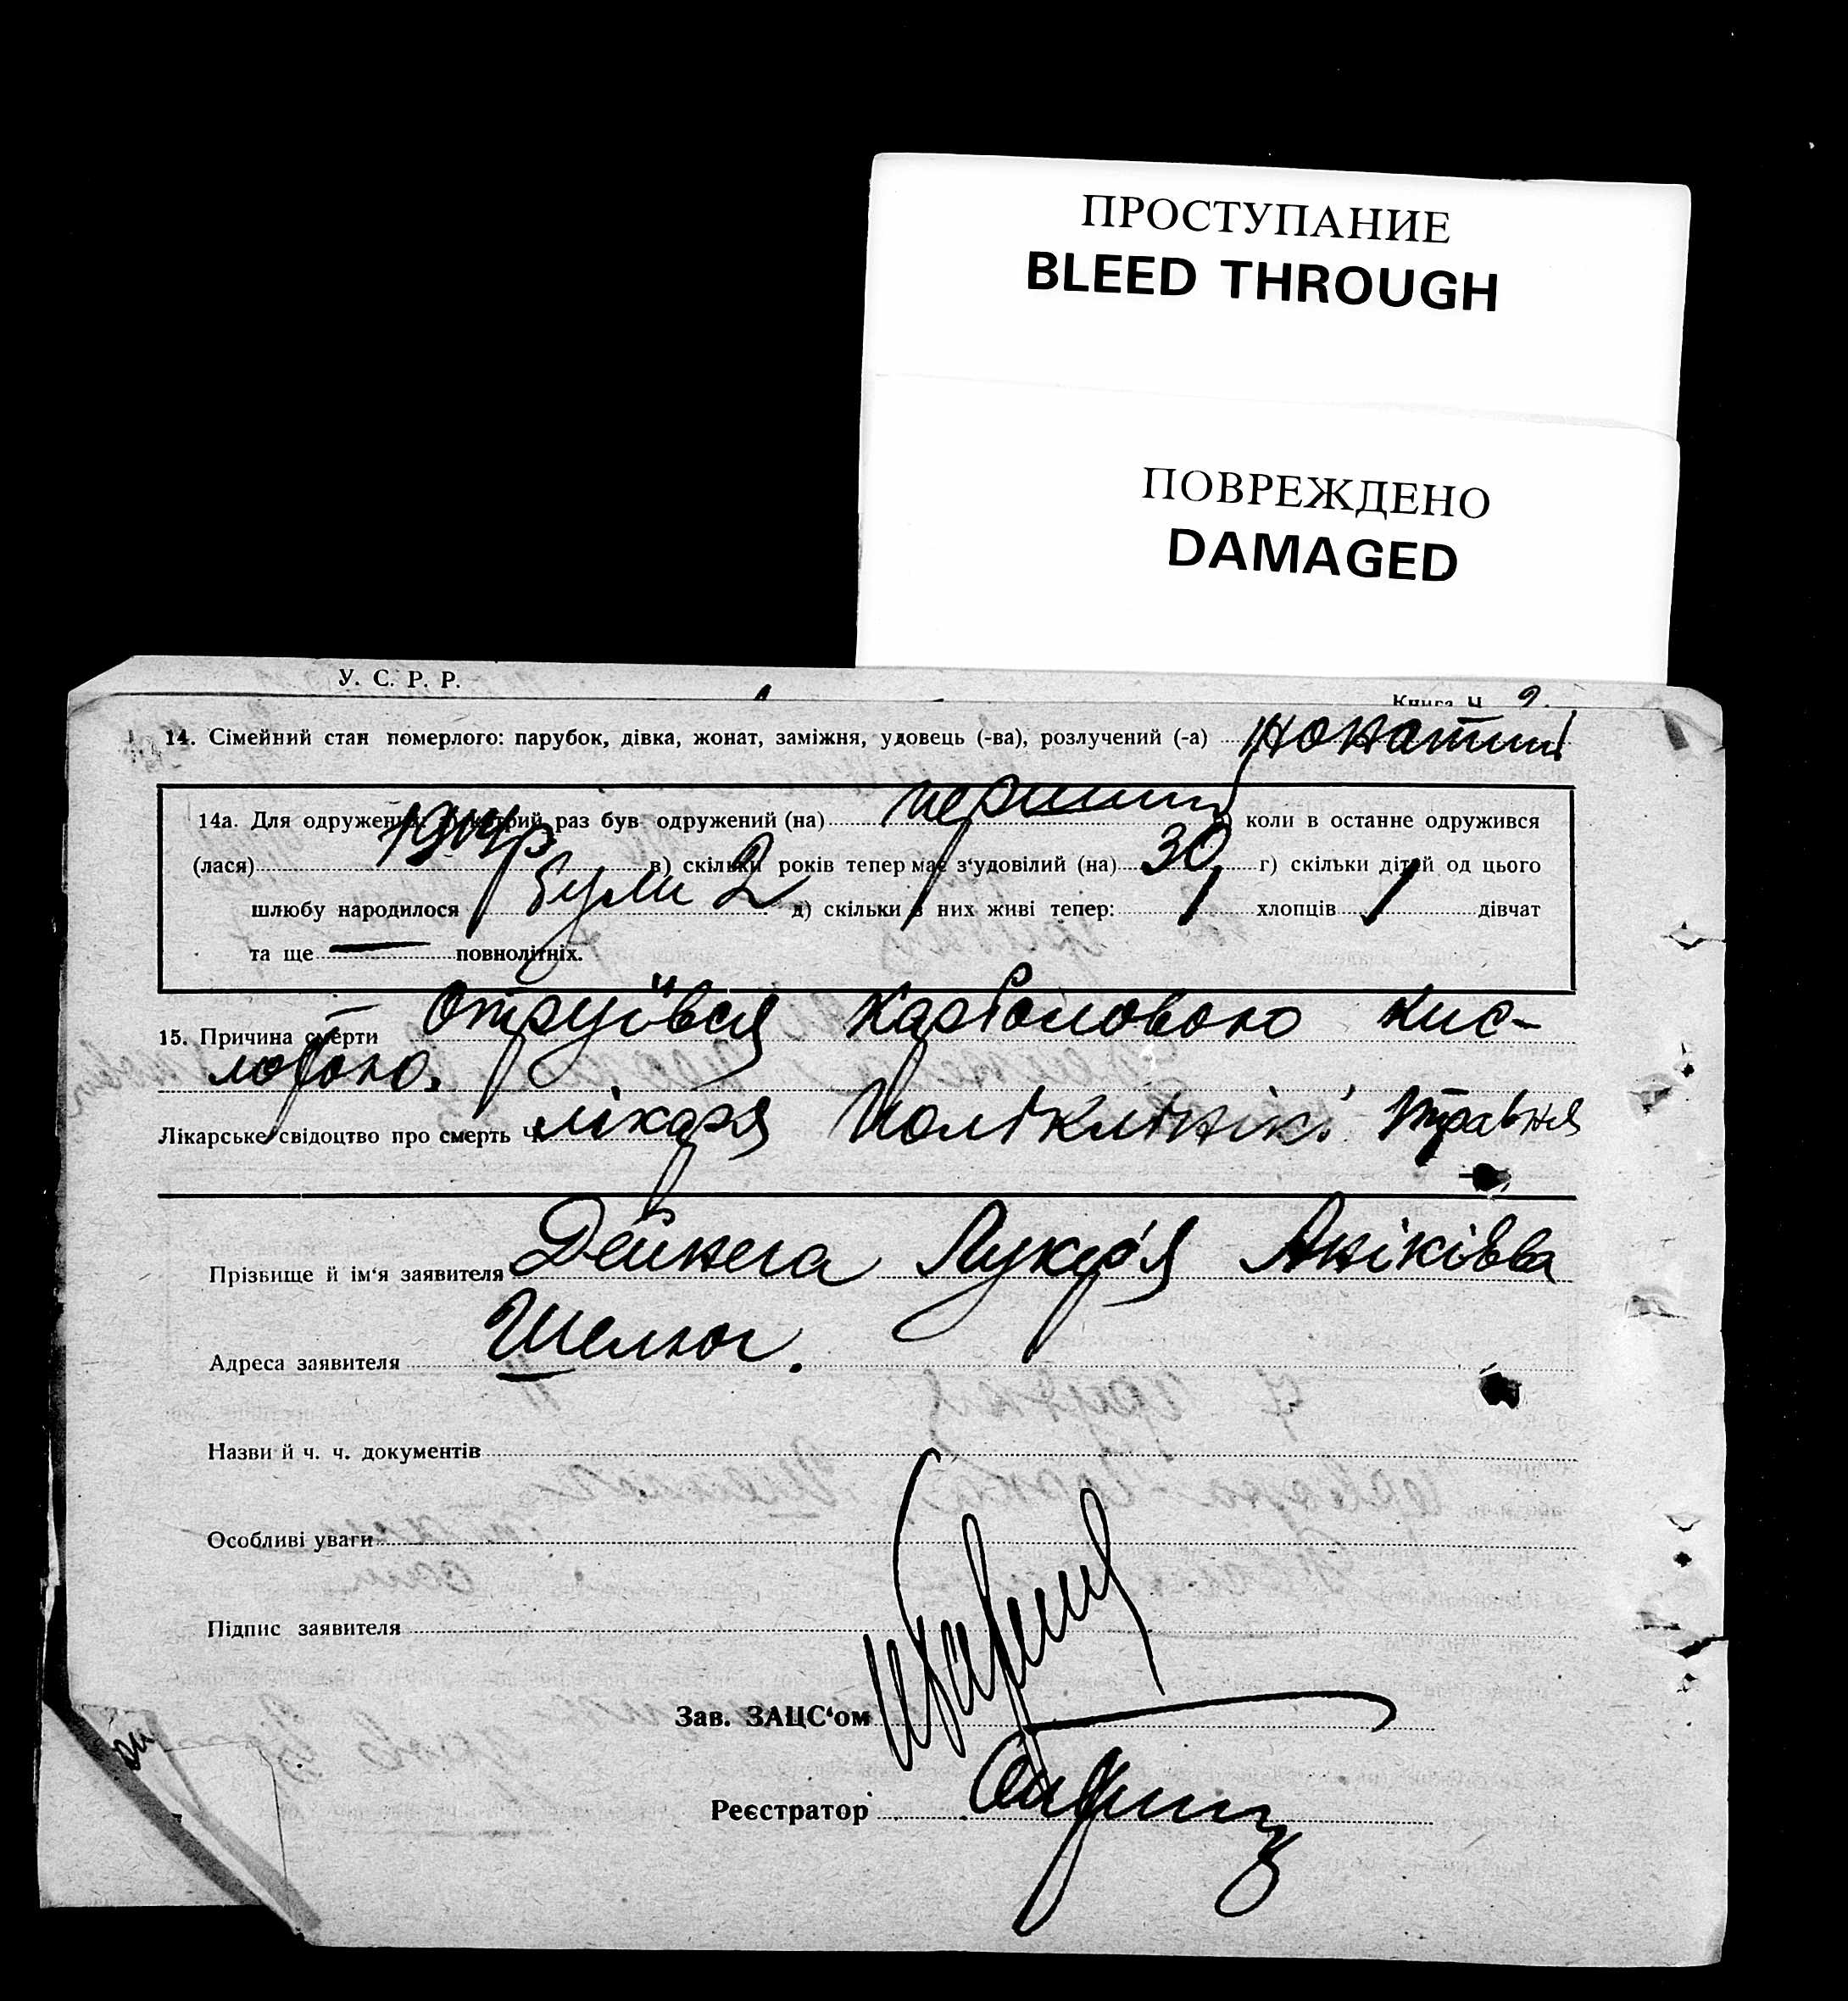 ПРОСТУПАНИЕ
BLEED THROUGH
ПОВРЕЖДЕНО
DAMAGED
У. С. Р. Р.
Книга Ч 2.
14. Сімейний стан померлого: парубок, дівка, жонат, заміжня, удовець (-ва), розлучений (-а) жонатий
14а. Для одружених: котрий раз був одружений (на) перший коли в останне одружився
(лася) в) скільки років тепер має з'удовілий (на) 30 г) скільки дітей од цього
шлюбу народилося були 2 д) скільки з них живі тепер: 1 хлопців 1 дівчат
та ще — повнолітніх.
15. Причина смерти Отруївся Карболовою кис-
лотою.
Лікарське свідоцтво про смерть Ч лікаря Поліклінікі травня
Прізвище й ім'я заявителя Дейнега Лукер'я Анікіівва
Адреса заявителя Шелюг.
Назви й ч. ч. документів
Особливі уваги
Підпис заявителя
Зав. ЗАЦС'ом
Реєстратор